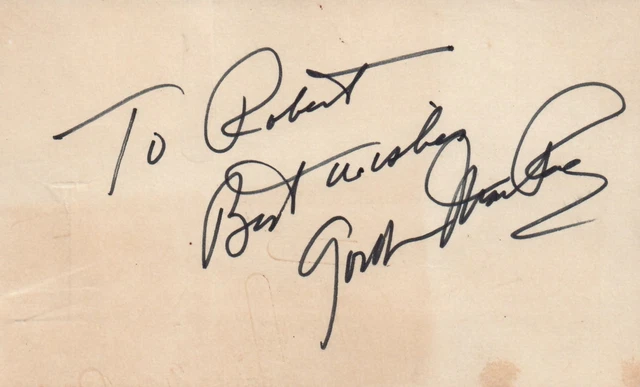 To Robert
Best wishes
Gordon MacRae